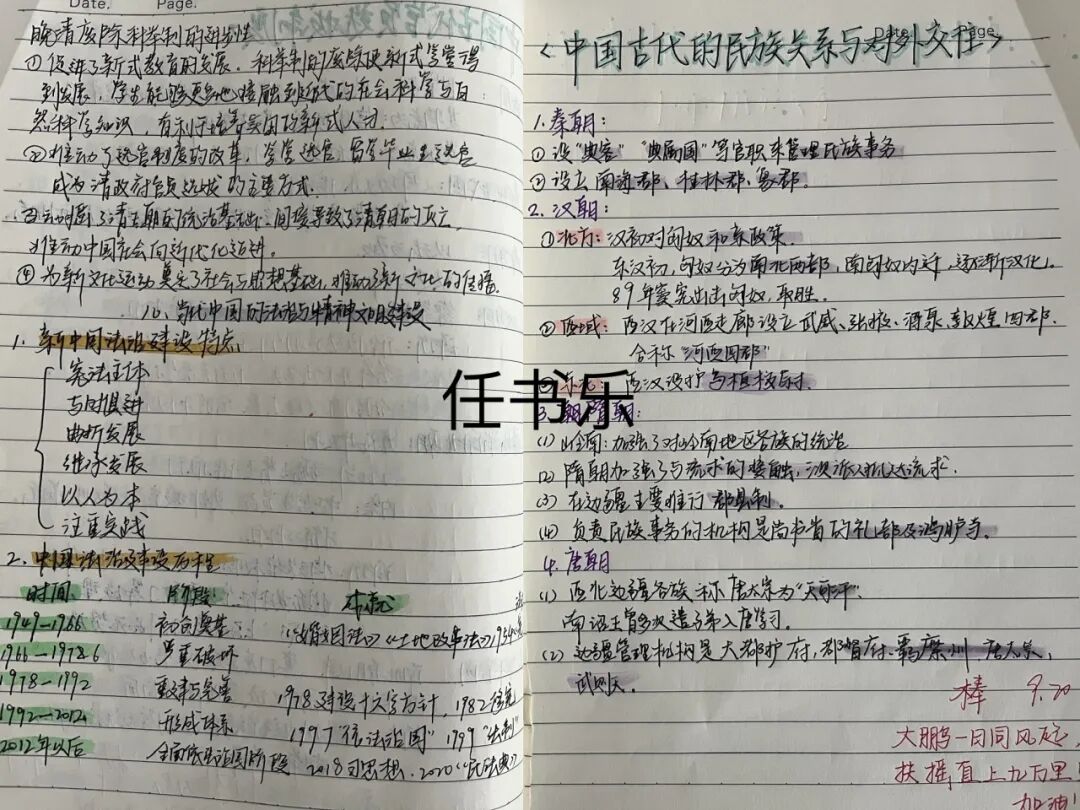 Date.
Page.
晚清废除科举制的进步性
①促进了新式教育的发展。科举制的废除使新式学堂得
到发展，学生能够更多地接触到近代的社会科学与自
然科学知识，有利于培养实用的新式人才.
②推动了选官制度的改革，学堂选官留学毕业生选官
成为清政府官员选拔的主要方式.
③动摇了清王朝的统治基础，间接导致了清朝的灭亡
推动中国社会向近代化迈进.
④为新文化运动奠定了社会与思想基础，推动了新文化的传播.
10、当代中国的法治与精神文明建设
1. 新中国法治建设特点
宪法主体
与时俱进
曲折发展
继承发展
以人为本
注重实践
2. 中国法治建设历程
时间
阶段
表现
1949-1966
初创奠基
《婚姻法》《土地改革法》1954
1966-1978
严重破坏
1978-1992
重建与完善
1978建设十六字方针，1982
1992-2012
形成体系
1997"依法治国" 1999
2012年以后
全面依法治国阶段
2018习思想. 2020《民法典》
<中国古代的民族关系与对外交往>
Page
1. 秦朝：
①设"典客""典属国"等官职来管理民族事务
②设立南海郡、桂林郡、象郡.
2. 汉朝：
①北方：汉初对匈奴和亲政策.
东汉初，匈奴分为南北两部，南匈奴内迁，逐渐汉化.
89年窦宪出击匈奴，取胜.
②西域：西汉在河西走廊设立武威、张掖、酒泉、敦煌四郡.
合称"河西四郡"
③东北：西汉设护乌桓校尉.
任书乐
3. 隋朝：
(1) 岭南：加强了对岭南地区各族的统治
(2) 隋朝加强了与流求的接触，派人抵达流求.
(3) 在边疆主要推行郡县制.
(4) 负责民族事务的机构是尚书省的礼部及鸿胪寺.
4. 唐朝
(1) 西北边疆各族称唐太宗为"天可汗"
南诏王曾多次遣子弟入唐学习.
(2) 边疆管理机构是大都护府，都督府、羁縻州 唐太宗，
武则天.
棒 9.20
大鹏一日同风起
扶摇直上九万里
加油!